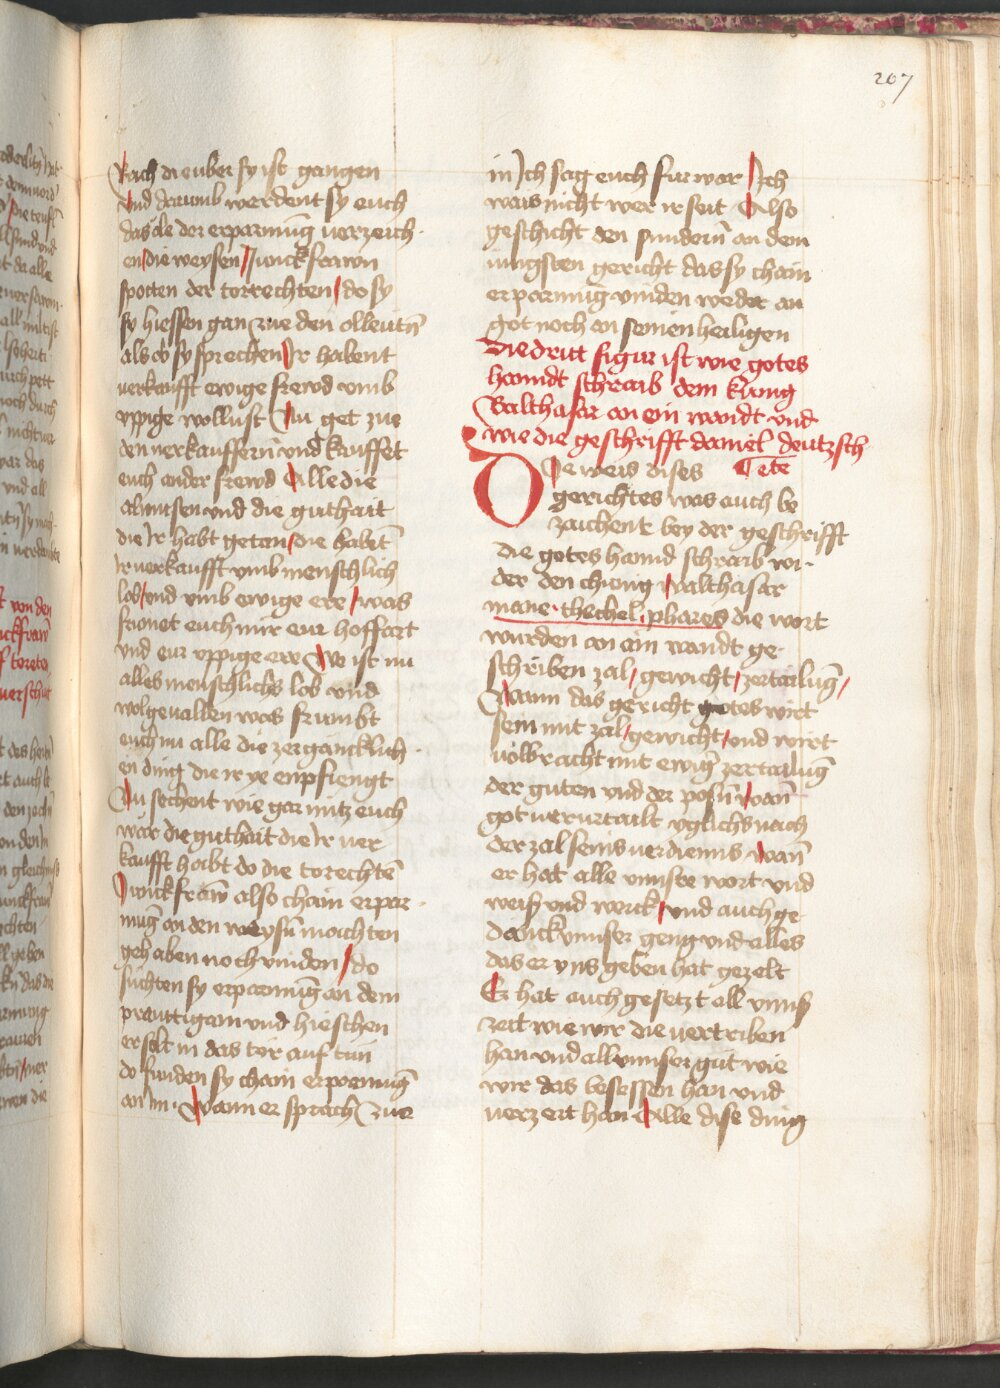 207
Rach die uber sy ist gangen
Vnd darumb werdent sy euch
das öle der erparmūg verzeich
en die weysen Junckfrawn
spotten der torrechten do sy
sy hiessen gan zue den olleutn̄
als ob sy sprechen Jr habent
verkaufft ewige frewd vmb
vppige wollust Nu get zue
den verkauffern̄ vnd kauffet
euch ander frewd Alle die
almusen vnd die guthait
die Jr habt getan die habt̄
Ir verkaufft vmb menschlich
lob vnd vmb ewige ere was
frionet euch nur eur hoffart
vnd eur vppige ere Wo ist nu
alles menschlichs lob vnd
wolgeuallen was frumbt
euch nu alle die zergäncklich
en ding die ir ye enpfiengt
Nu sechent wie gar nutz euch
war die guthait die Jr ver
kaufft habt do die torechtē
Junckfraw̄ also chain erpar
mūg an den weysn̄ mochten
gehaben noch vinden do
suchten sy erparmūg an dem
preuttigam vnd hieschen
er solt in das tor auf tun
do funden sy chain erparmūg
an Im Wann er sprach zue
in Jch sag euch fur war Jch
wais nicht wer ir seit Also
geschicht den sundern̄ an dem
iungsten gericht das sy chain
erparmūg vinden weder an
got noch an seinen heiligen
Die dritt figur ist wie gotes
hanndt schraib dem kvnig
Balthasar an ein wandt vnd
wie die geschrifft daniel deutzsch
Tete
Die weis dises
gerichtes was auch be
zaichent bey der geschrifft
die gotes hannd schraib wi
der den chunig walthasar
mane thechel phares die wort
wurden an ein wandt ge
schriben zal gewicht zertailūg
Wann das gericht gotes wirt
sein mit zal gewicht vnd wirt
volbracht mit ewiḡ zertailūg
der guten vnd der posn̄ wan̄
got verurtailt yglichs nach
der zal seins verdienns wan̄
er hat alle vnnsre wort vnd
weiss vnd werck vnd auch ge
danck vnnser geng vnd alles
das er vns geben hat gezelt
Er hat auch gesetzt all vnnss
zeit wie wir die vertriben
han vnd all vnnser gut wie
wir das besessen han vnd
verzert han Alle dise ding